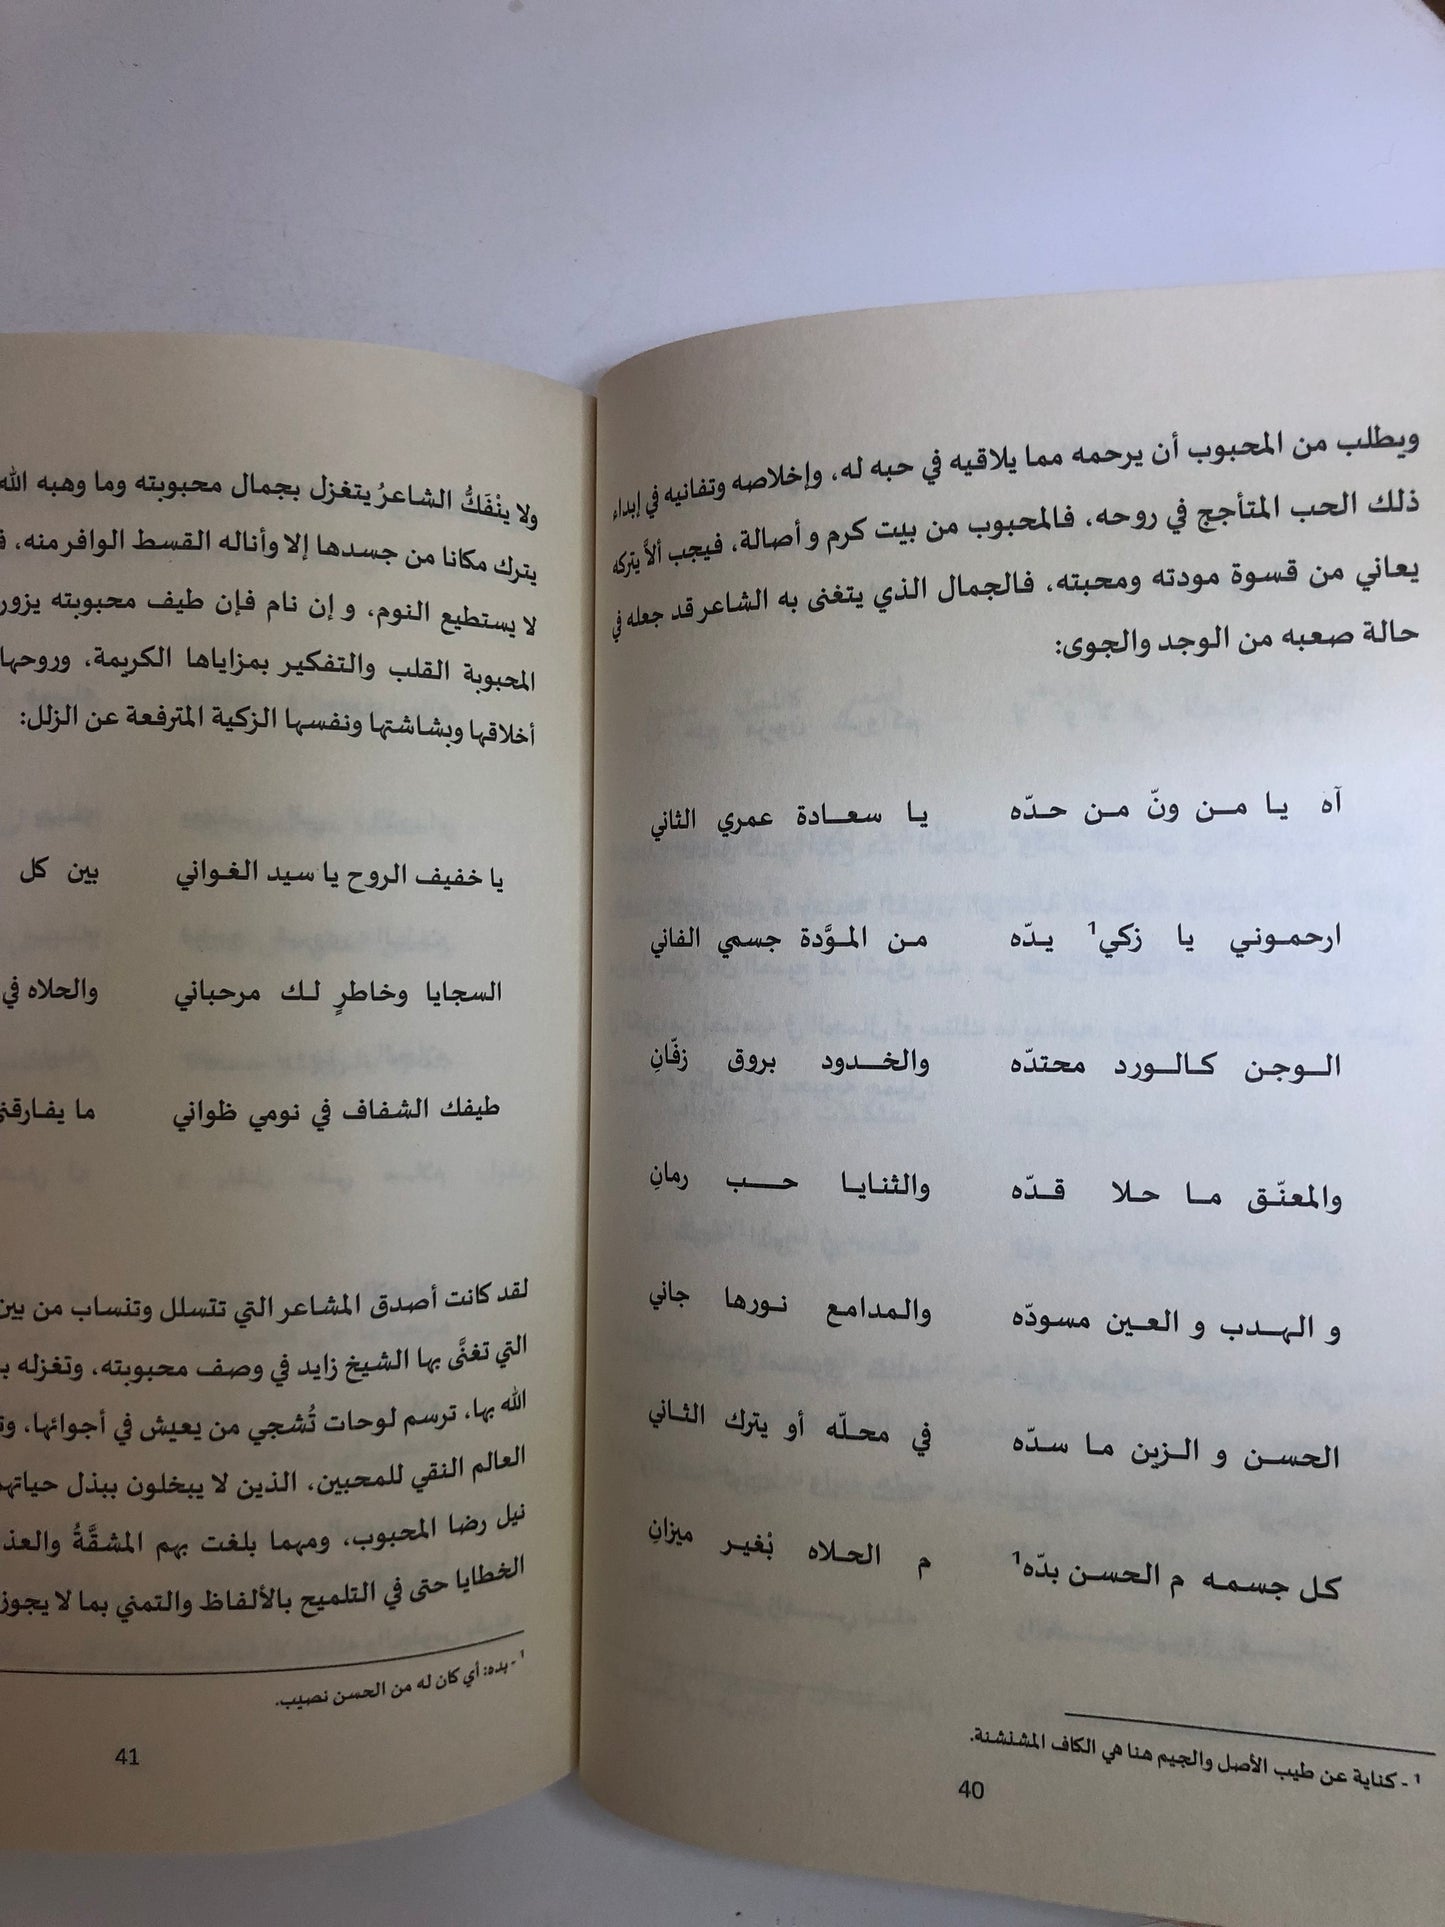 ويطلب من المحبوب أن يرحمه مما يلاقيه في حبه له، وإخلاصه وتفانيه في إبداء
ذلك الحب المتأجج في روحه، فالمحبوب من بيت كرم و أصالة، فيجب ألاَّ يتركه
يعاني من قسوة مودته ومحبته، فالجمال الذي يتغنى به الشاعر قد جعله في
حالة صعبه من الوجد والجوى:
آه يا مـن ونّ مـن حـدّه يا سعـادة عمري الثاني
ارحمـوني يا زكي¹ يـدّه مـن المـوَّدة جسمي الفاني
الـوجـن كـالـورد محتدّه والخـدود بروق زفّانِ
والمعنّـق مـا حـلا قـدّه والثنايـا حـب رمانِ
و الهـدب و العـين مسودّه والمـدامع نـورها جاني
الحسـن و الـزين مـا سـدّه في محـلّه أو يترك الثـاني
كل جسمـه م الحسـن بدّه¹ م الحـلاه بْغيـر ميزانِ
¹ - كناية عن طيب الأصل والجيم هنا هي الكاف المشنشنة.
40
ولا ينْفَكُّ الشاعرُ يتغزل بجمال محبوبته وما وهبه الله
يترك مكانا من جسدها إلا وأناله القسط الوافر منه،
لا يستطيع النوم، و إن نام فإن طيف محبوبته يزور
المحبوبة القلب والتفكير بمزاياها الكريمة، وروحها
أخلاقها وبشاشتها ونفسها الزكية المترفعة عن الزلل:
يا خفيف الروح يا سيد الغـواني بين كل
السجايا وخاطرٍ لـك مرحباني والحلاه في
طيفك الشفاف في نومي ظواني ما يفـارقني
لقد كانت أصدق المشاعر التي تتسلل وتنساب من بين
التي تغنَّى بها الشيخ زايد في وصف محبوبته، وتغزله
الله بها، ترسم لوحات تُشجي من يعيش في أجوائها،
العالم النقي للمحبين، الذين لا يبخلون ببذل
نيل رضا المحبوب، ومهما بلغت بهم المشقَّةُ
الخطايا حتى في التلميح بالألفاظ والتمني بما لا يجوز
¹ - بده: أي كان له من الحسن نصيب.
41